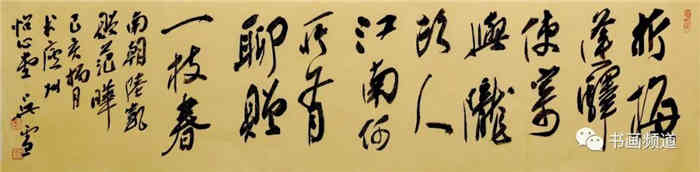 折梅
逢驛
使寄
與隴
頭人
江南何
所有
聊贈
一枝春
南朝陸凱
贈范曄
己亥月
於廬州
怡心堂 吳雪
书画频道